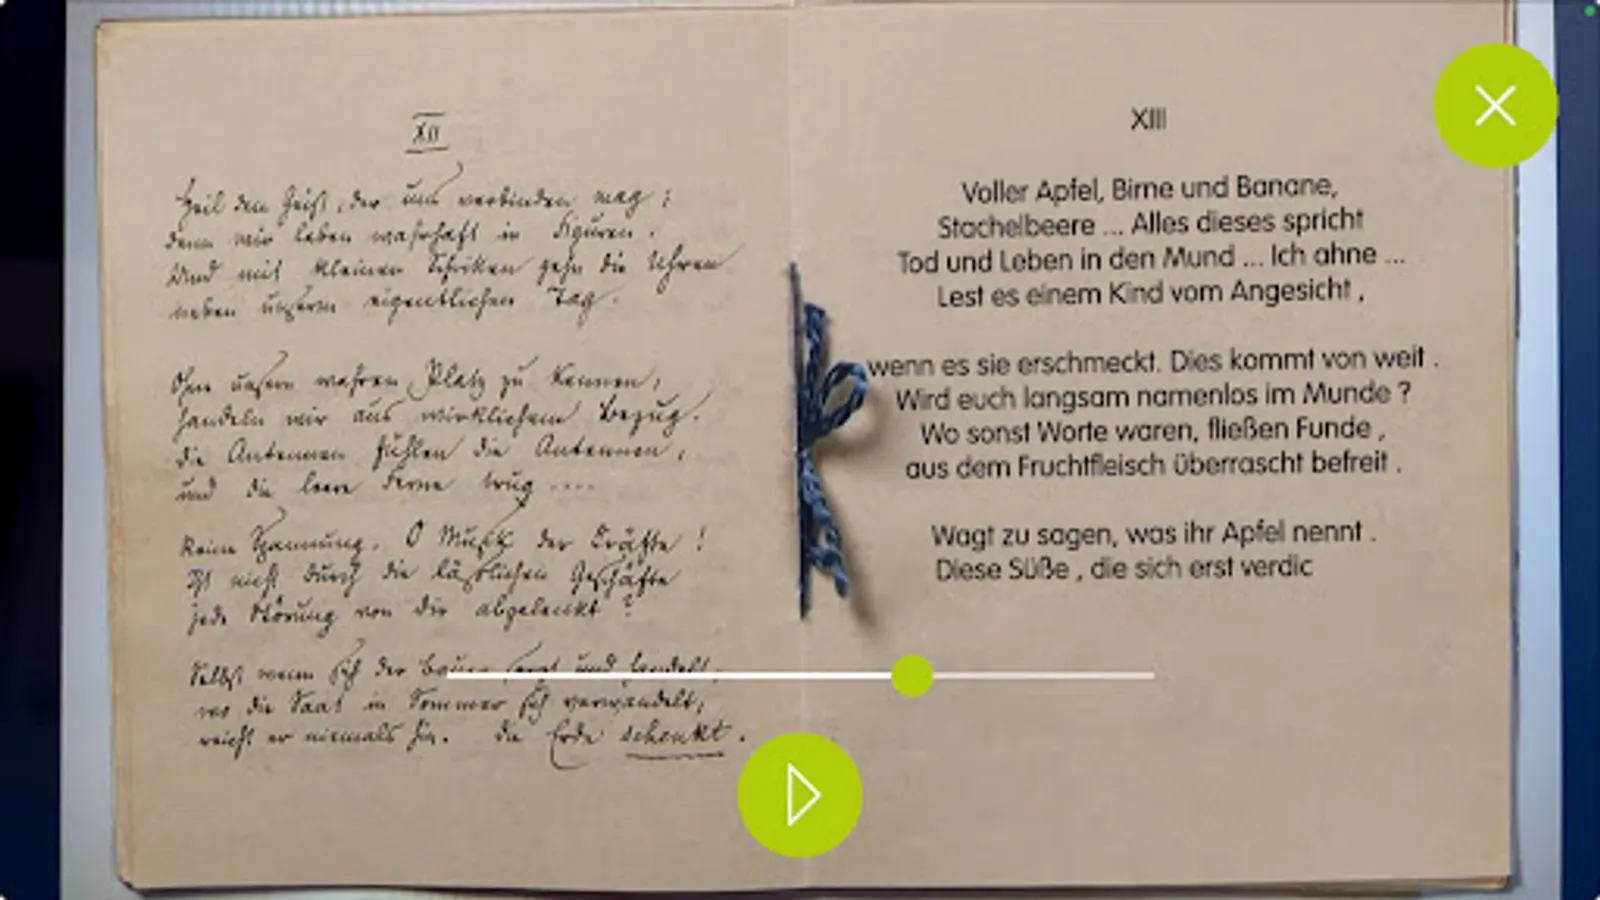 XII
Heil dem Geist, der uns verbinden mag;
denn wir leben wahrhaft in Figuren.
Und mit kleinen Schritten gehn die Uhren
neben unserm eigentlichen Tag.
Ohne unsern wahren Platz zu kennen,
handeln wir aus wirklichem Bezug.
Die Antennen fühlen die Antennen,
und die leere Ferne trug ....
Reine Spannung. O Musik der Kräfte!
Ist nicht durch die läßlichen Geschäfte
jede Störung von dir abgelenkt?
Selbst wenn sich der Bauer sorgt und handelt,
wo die Saat in Sommer sich verwandelt,
reicht er niemals hin. Die Erde schenkt.
XIII
Voller Apfel, Birne und Banane,
Stachelbeere ... Alles dieses spricht
Tod und Leben in den Mund ... Ich ahne ...
Lest es einem Kind vom Angesicht ,
wenn es sie erschmeckt. Dies kommt von weit .
Wird euch langsam namenlos im Munde ?
Wo sonst Worte waren, fließen Funde ,
aus dem Fruchtfleisch überrascht befreit .
Wagt zu sagen, was ihr Apfel nennt .
Diese Süße , die sich erst verdic